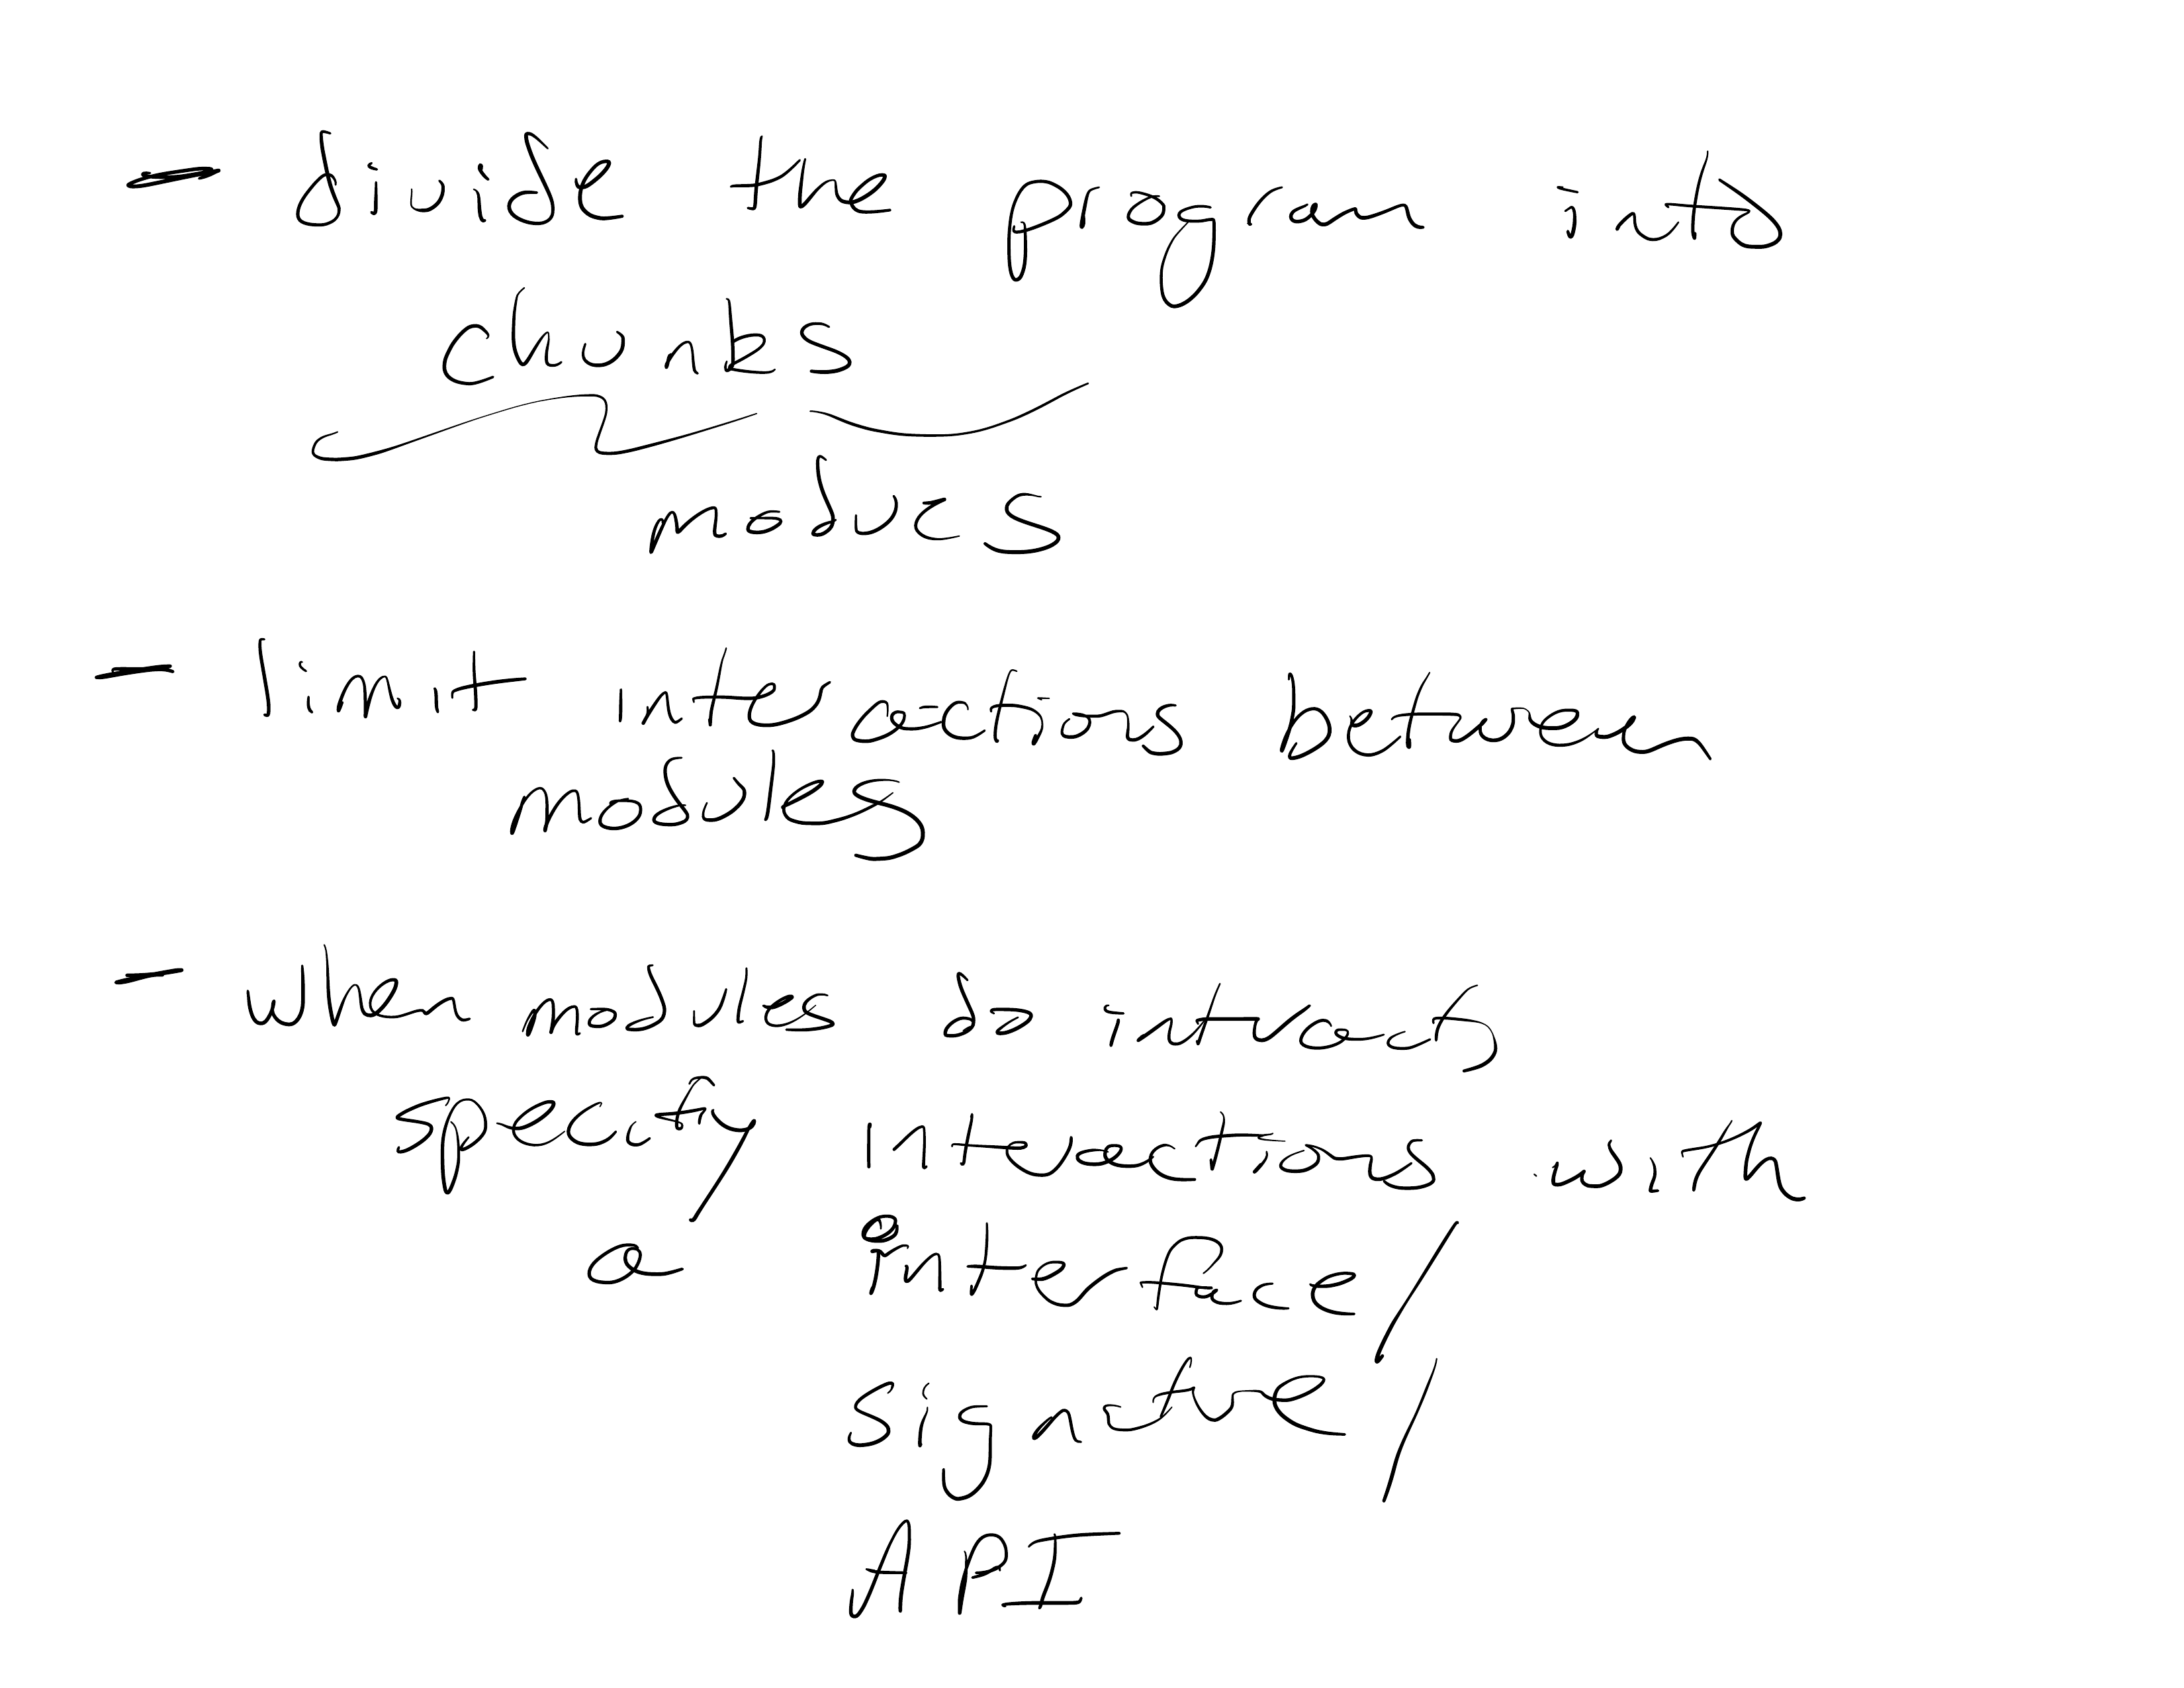 - divide the program into
chunks
modues
- limit interactions between
modules
- when modules do interact,
specify interactions with
a interface/
signature/
API